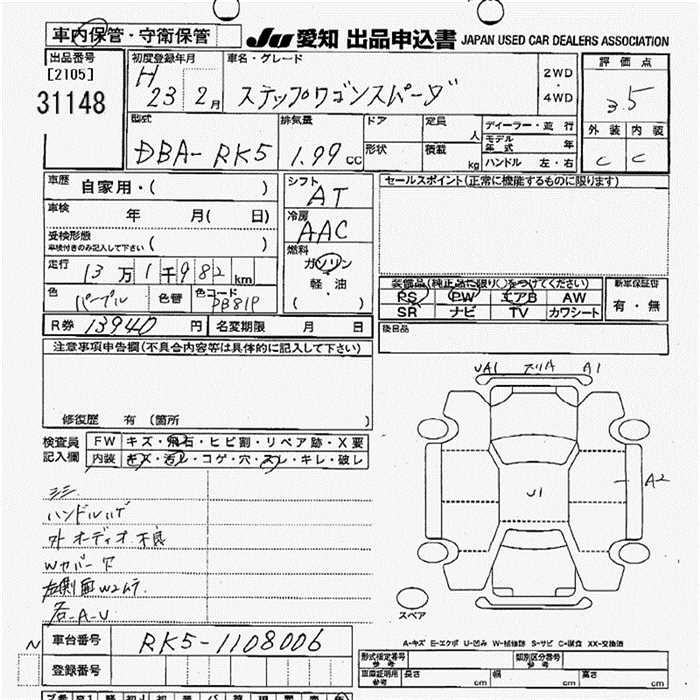 車内保管・守衛保管
JU 愛知 出品申込書 JAPAN USED CAR DEALERS ASSOCIATION
出品番号
[2105]
31148
初度登録年月
H 23 2月
車名・グレード
ステップワゴンスパーダ
2WD
・
4WD
評価点
3.5
外装 内装
C C
型式
DBA-RK5
排気量
1.99cc
ドア
形状
定員 人
積載 kg
ディーラー・並行
モデル年式 年
ハンドル 左・右
車歴 自家用・( )
車検 年 月( 日)
受検形態
車検付きのみ記入して下さい ( )
走行 13万1千982km
色 パープル 色替 色コード PB81P
シフト
AT
冷房
AAC
燃料
ガソリン
軽・油
( )
セールスポイント(正常に機能するものに限ります)
装備品(純正品に限り○をつけてください)
PS PW エアB AW
SR ナビ TV カワシート
新車保証書
有・無
後日品
R券 13940円 名変期限 月 日
注意事項申告欄(不具合内容等は具体的に記入して下さい)
修復歴 有 (箇所 )
検査員
記入欄
FW キズ・飛石・ヒビ割・リペア跡・X要
内装 キズ・汚レ・コゲ・穴・スレ・キレ・破レ
ハンドルハゲ
外 オーディオ 不良
Wカバー 欠
右-A-U
UA1
A1
U1
A2
スペア
N
車台番号 RK5-1108006
登録番号
A-キズ E-エクボ U-凹み W-補修跡 S-サビ C-腐食 XX-交換済
型式指定番号 参考
類別区分番号 参考
車庫証明用 参考 長さ cm 幅 cm 高さ cm